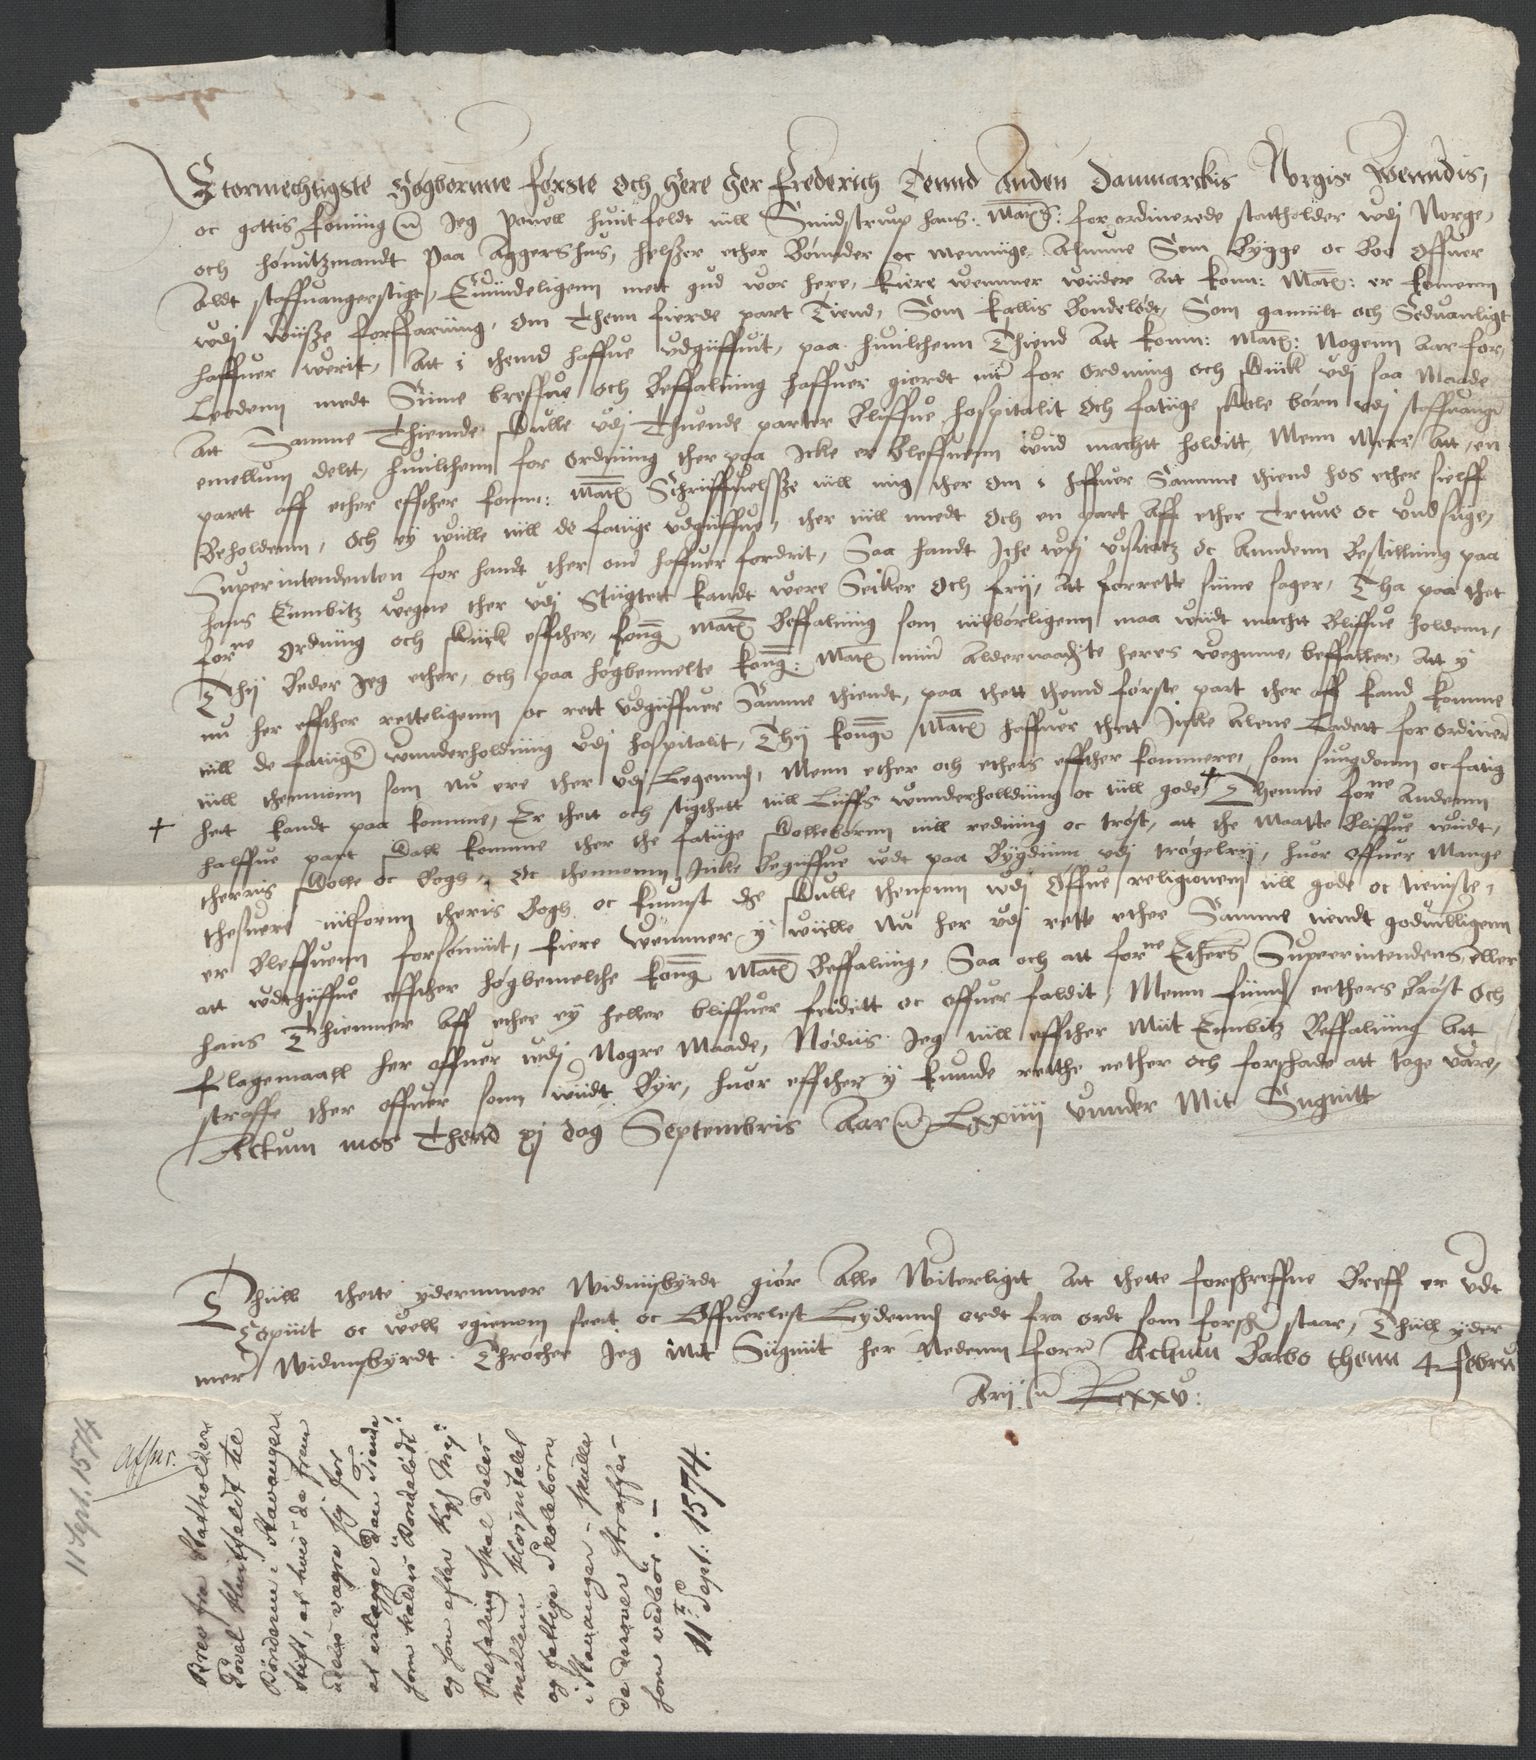 Stormechtigste Høgbornne første och Here Her Frederich Tennd Anden Danmarckis Norgis Wenndis,
oc gottis konning etc Jeg Pouell Huitfeldt till Suidstrup hans: Maits: for ordinerede stattholder wdj Norge,
och høuitzmandt Paa Aggershus, helsser ether Bønnder oc menniige Almue Som Bygge oc Boe offuer
Aldt staffuangerstigt, Euindeligenn mett gud wor here, kiere wenner wiider Att konn: Matt: er komenn
wdj wiisse forffariing, om Thenn fierde part Tiend, Som kallis Bondelødt, Som gamiilt och Seduanligt
haffuer werit, Att i thend haffue vdgiiffuit, paa huilchenn Thiend Att konn: Matt: Nogenn Aar for,
Leedenn medt Siine breffue och Beffalning haffuer giordt itt for ordning och skiick vdj saa Maade
Att Samme Thiennde skulle vdj Thuende parter Bliffue hospitalit och fatiige skole børn vdj staffuanger
emellum delt, huilchenn for ordniing ther paa Icke er Bleffuenn wiid machtt holditt, Menn Merr Att, en
partt aff ether effther konn: Matt Schriffuelsse till mig ther om i haffuer Samme thiend hos ether sielff
Beholdenn, och ey wiille till de fatiige vdgiiffue, ther till medt och en part Aff ether Truue oc vndsiige,
Superintendenten for handt ther om haffuer fordrit, Saa handt Iche wdj visitatz oc Anndenn Bestillning paa
hans Embitz wegne ther vdj Stiigtet kandt were Seiker och frii, Att forrette siine sager, Tha paa thet
forne ordniing och skiick effther, kong Matt Beffalniing som tilbørligenn maa wiidt machtt Bliffue holdenn,
Thij Beder Jeg ether, och paa høgbemelte kong: Matt miin Aldernaadiste herres wegnne, beffaller, Att y
nu her effther retteligenn oc rett vdgiiffuer Samme thiendt, paa thett thend første part ther aff kand komme
till de fatiigs wnnderholdniing vdj hospitalit, Thij kong Matt haffuer thett Iicke Alene Ladett for ordiner
till thennom som nu ere ther vdj Legennd, Menn ether och ethers effther kommere, som siugdonn oc fatig
heit kandt paa komme, Er thett och stiigthett till Liiffs wnnderholldniing oc till gode + Thenne forne Andenn
+ halffue part skall komme ther the fatiige skollebørnn till rediing oc trøst, att the Maatte Bliffue wiidt,
therris skolle oc Bogh, oc thennom Iicke Begiiffue wdt paa Bygdinn vdj trøgelrij, huor offuer Mange
thesuere tilfornn theris Bogh oc kunst the skulle thenom wdj Offue religionen till gode oc tieniste,
er Bleffuenn forsømiit, kiere Wenner y wiille nu her vdj rette ether Samme tiendt goduilligenn
att wdtgiiffue effther høgbemelthe kong Matt Beffaliing, Saa och att forne Ethers Superintendens, eller
hans Thienner Aff ether ey heller bliffuer feidett oc offuer faldit, Menn fiinds eethers Brøst och
klagemaall her offuer wdj Nogre Maade, Nødiis Jeg till effther Miit Embitz Beffaliing Att
straffe ther offuer som wiidt Byr, huor effther y kunde retthe eether och forschade att tage vare,
Actum Mos Thend xj dag Septembris Aar etc Lxxiiij vnnder Mit Signitt
Thiill thette ydermmer Widniisbyrdt giør Alle Witerligtt Att thette forschreffne Breff er vdt
Copiit oc well egienom seett oc Offuerlest Lydennd ordt fra ordt som forsch staar, Thiill yder
mer Widnisbyrdt Throcher Jeg Mit Siigniit her Nedenn forr Actum Barbo thenn 4 februa
Arij etc Lxxv:
11 Sept. 1574
Affsr.
Brev fra Statholderen
Povel Huitfeldt til
Bønderne i Stavanger
Stift, at hvis de frem
deles vægre sig for
at erlægge den Tiende
som kaldes Bondelodt
og som efter Kgl. Maj:
Befaling skal deles
mellem Hospitalet
og fattige Skolebørn
i Stavanger, skulle
de derover straffes
som vedbør. —
11te Sept: 1574.